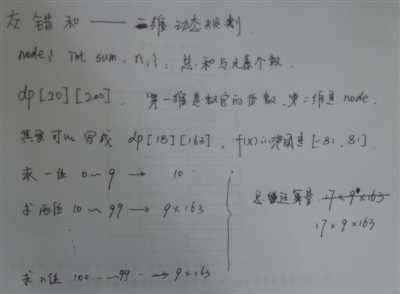 左错和 —— 二维动态规划.
node{ int sum. n; }; 总和与元素个数.
dp[20][200]. 第一维是数字的位数. 第二维是 node.
其实可以写成 dp[18][163], f(x)的范围是[-81, 81]
求一位 0~9 → 10
求两位 10~99 → 9×163
⋮
求n位 100…~99… → 9×163
总运算量 17×9×163
17×9×163